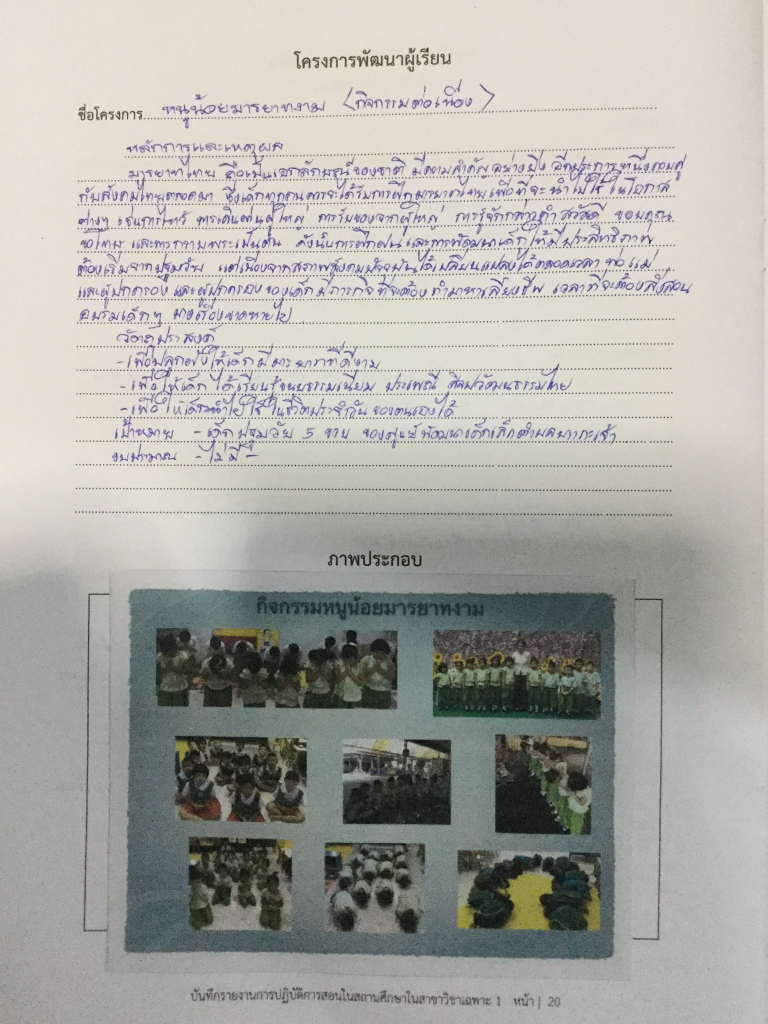 โครงการพัฒนาผู้เรียน
ชื่อโครงการ หนูน้อยมารยาทงาม (กิจกรรมต่อเนื่อง)
หลักการและเหตุผล
มารยาทไทย ถือเป็นเอกลักษณ์ของชาติ มีความสำคัญอย่างยิ่ง อีกประการหนึ่งควบคู่
กับสังคมไทยตลอดมา ซึ่งเด็กทุกคนควรจะได้รับการฝึกมารยาทไทยเพื่อที่จะนำไปใช้ในโอกาส
ต่างๆ เช่นการไหว้ การเดินผ่านผู้ใหญ่ การรับของจากผู้ใหญ่ การรู้จักกล่าวคำ สวัสดี ขอบคุณ
ขอโทษ และการกราบพระเป็นต้น ดังนั้นการฝึกฝน และการพัฒนาเด็กให้มีประสิทธิภาพ
ต้องเริ่มจากปฐมวัย แต่เนื่องจากสภาพสังคมปัจจุบันได้เปลี่ยนแปลงได้ตลอดเวลา พ่อแม่
และผู้ปกครอง และผู้ปกครองของเด็กมีภารกิจที่จะต้องทำมาหาเลี้ยงชีพ เวลาที่จะต้องสั่งสอน
อบรมเด็กๆ บางเรื่องขาดหายไป
วัตถุประสงค์
-เพื่อปลูกฝังให้เด็กมีมารยาทที่ดีงาม
-เพื่อให้เด็กได้เรียนรู้ขนบธรรมเนียม ประเพณี ศิลปวัฒนธรรมไทย
-เพื่อให้เด็กนำไปใช้ในชีวิตประจำวันของตนเองได้
เป้าหมาย -เด็กปฐมวัย 5 ขวบ ของศูนย์พัฒนาเด็กเล็กตำบล
งบประมาณ -ไม่มี-
ภาพประกอบ
กิจกรรมหนูน้อยมารยาทงาม
บันทึกรายงานการปฏิบัติการสอนในสถานศึกษาในสาขาวิชาเฉพาะ 1 หน้า | 20